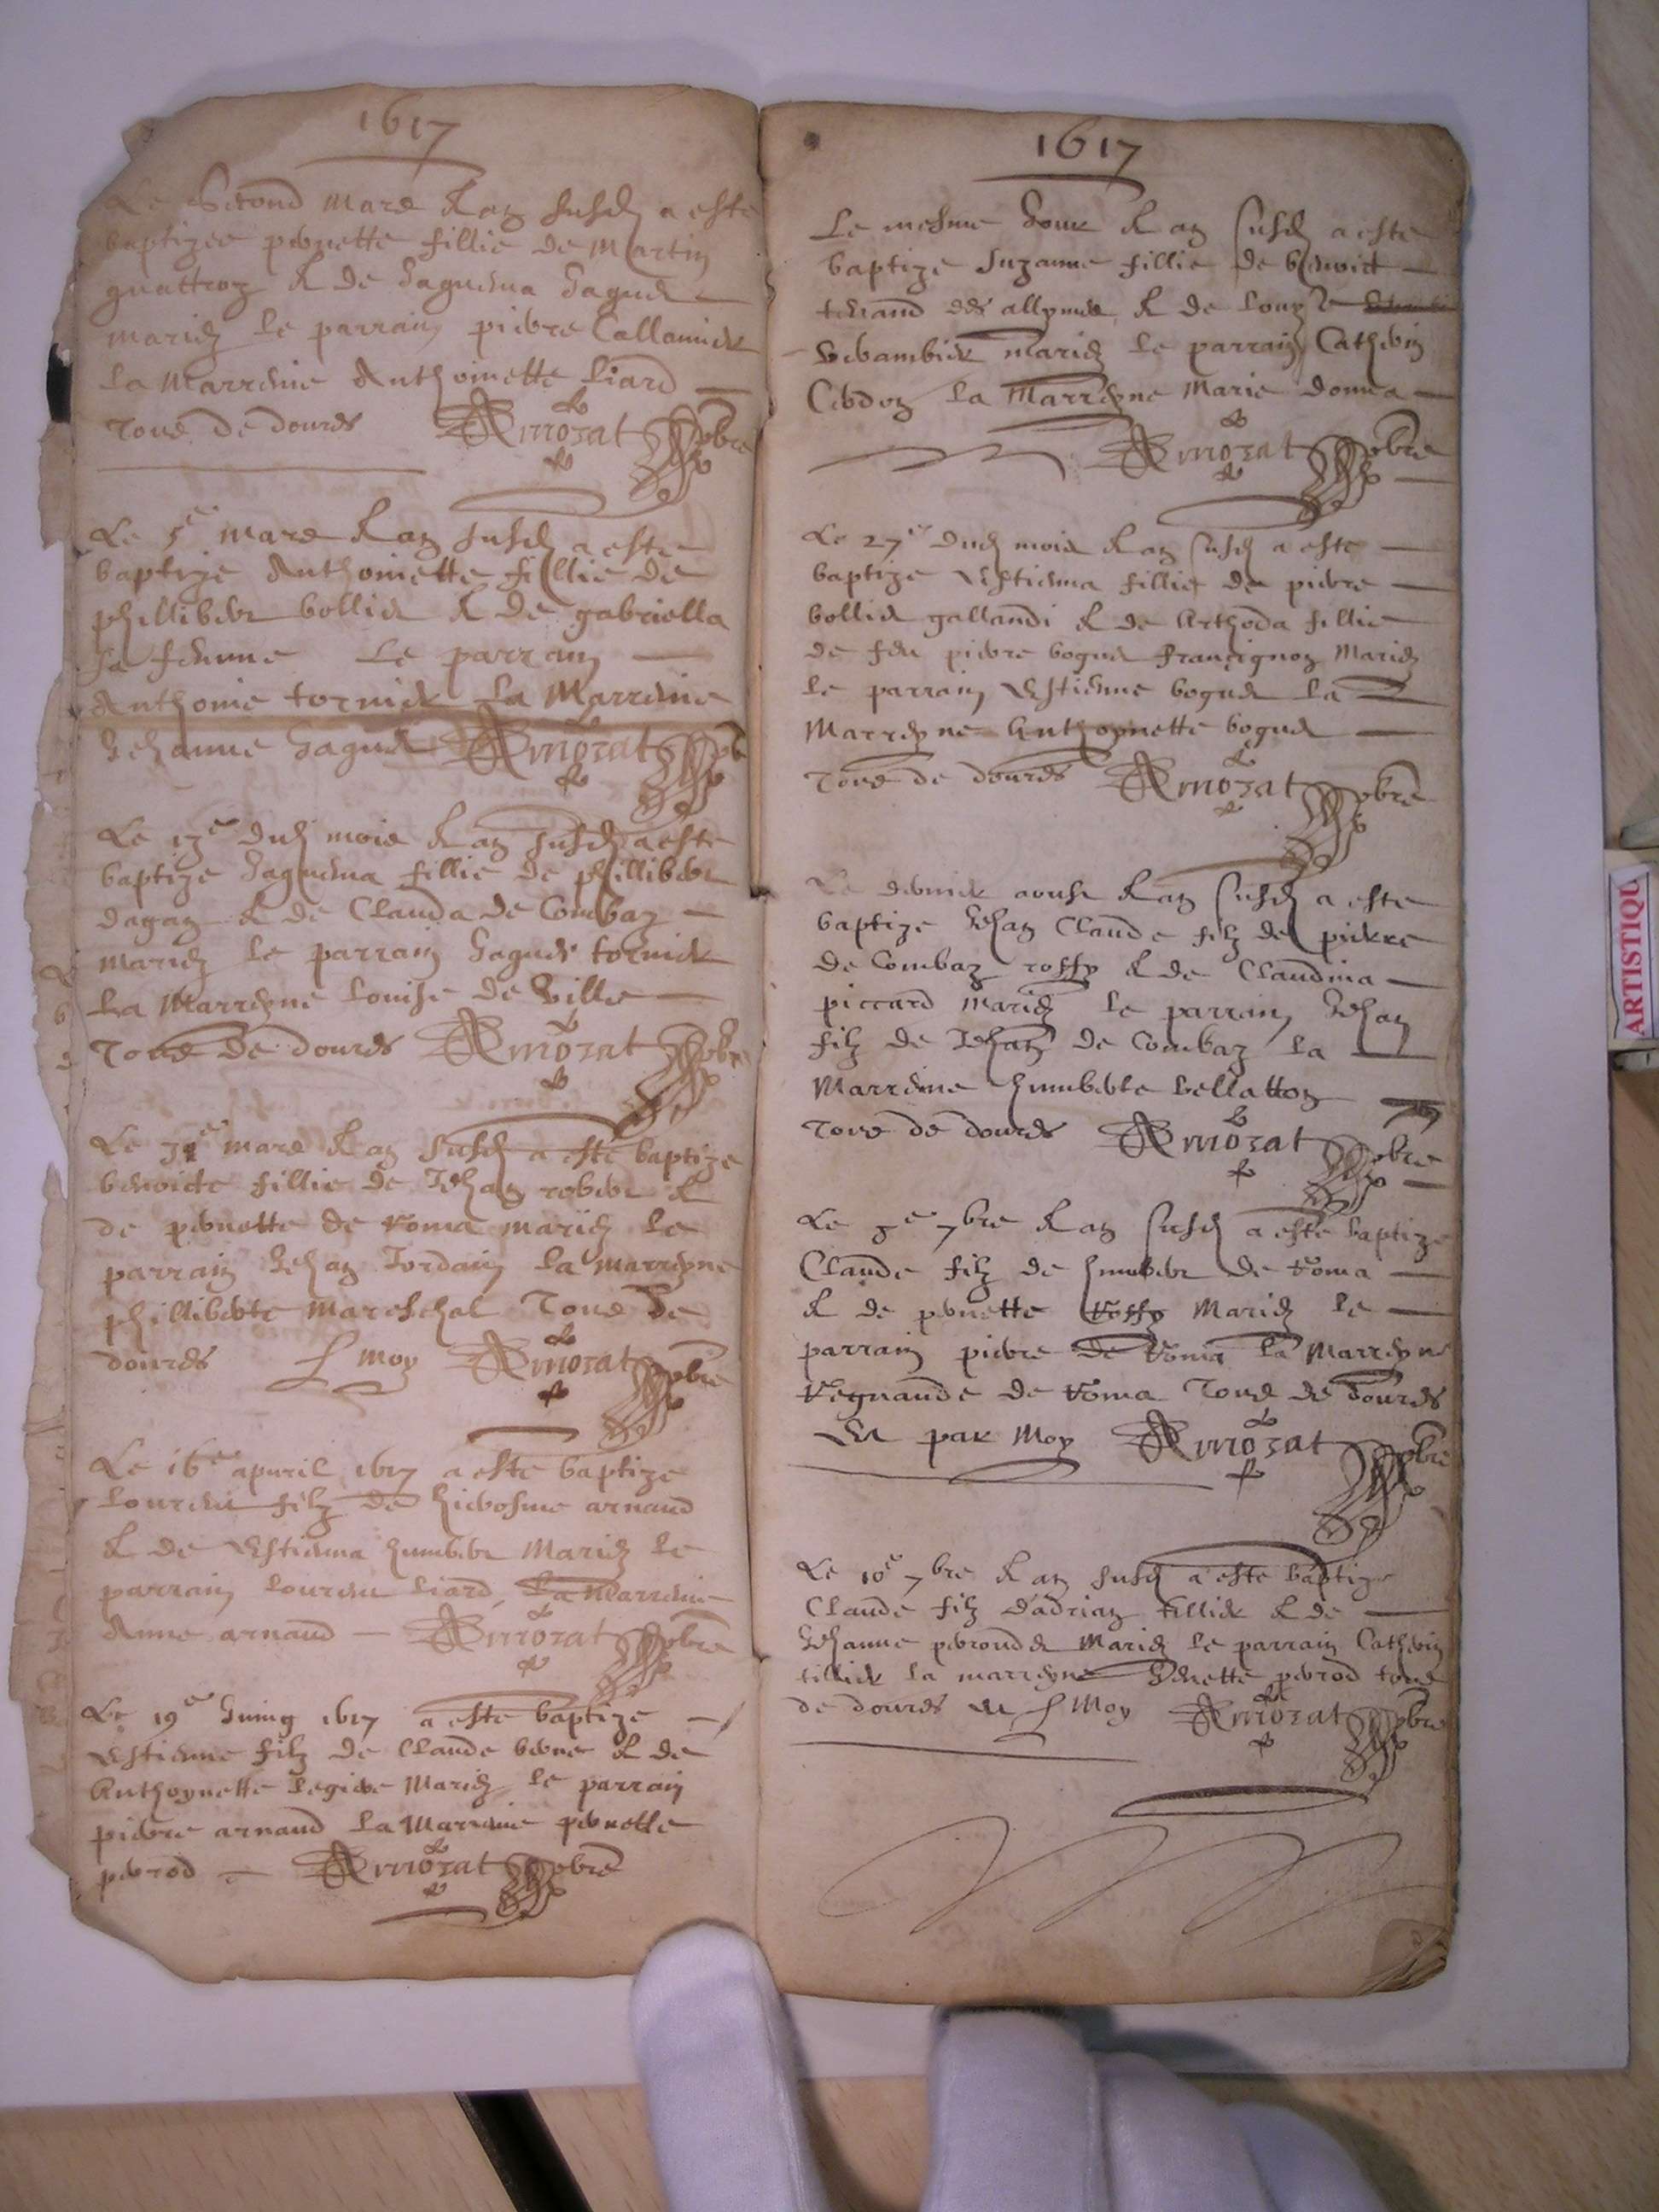 1617
Le second mars & an susd a este
baptizee pernette fillie de Martin
quattroz & de Jaquema Jaques
mariez le parrain pierre Callamier
la Marreine Anthoinette Liard
Tous de doures Amozat pbre
Le 5e mars & an susd a este
baptize Anthoinette fillie de
phillibert bollier & de gabriella
sa femme Le parrain
Anthoine tornier La Marreine
Jehanne Jaques Amozat pbre
Le 13e dud mois & an susd a este
baptize Jaquema fillie de phillibert
dagan & de Clauda de Combaz
Mariez le parrain Jaques tornier
La Marreyne Louise de Ville
Tous de doures Amozat pbre
Le mars & an susd a este baptize
benoicte fillie de Jehan robert &
de pernette de Roma mariez le
parrain Jehan Jordain la marreyne
philliberte Mareschal Tous de
doures p moy Amozat pbre
Le 16e apuril 1617 a este baptize
Lourens filz de hierosme arnaud
& de Estiema humbert Mariez le
parrain Lourens Liard La Marreine
Anne arnaud Amozat pbre
Le 19e Juing 1617 a este baptize
Estienne filz de Claude berne &  de
Anthoynette legiere Mariez le parrain
pierre arnaud La Marreine pernette
perrod Amozat pbre
1617
Le mesme Jour & an susd a este
baptize Suzanne fillie de benoict
tenand des allymes & de Louyse
mariez le parrain Catherin
la Marreyne Marie donna
Amozat pbre
Le 27e dud mois & an susd a este
baptize Estiema fillie de pierre
bollier gallandi & de Arthoda fillie
de feu pierre bogues françignoz Mariez
le parrain Estienne bogues la
Marreyne Anthoynette bogues
Tous de doures Amozat pbre
Le dernier aoust & an susd a este
baptize Jehan Claude filz de pierre
de Combaz roffy & de Claudina
piccard Mariez le parrain Jehan
filz de Jehan de Combaz la
Marreine humberte bellatton
Tous de doures Amozat pbre
Le 7bre & an susd a este baptize
Claude filz de humbert de Roma
& de pernette Roffy Mariez le
parrain pierre de Roma La Marreyne
Regnaude de Roma Tous de doures
Et par Moy Amozat pbre
Le 10e 7bre & an susd a este baptize
Claude filz d'adrian tillier & de
Jehanne Mariez le parrain Catherin
tillier la marreyne perrod tous
de doures et p Moy Amozat pbre
ARTISTIQU